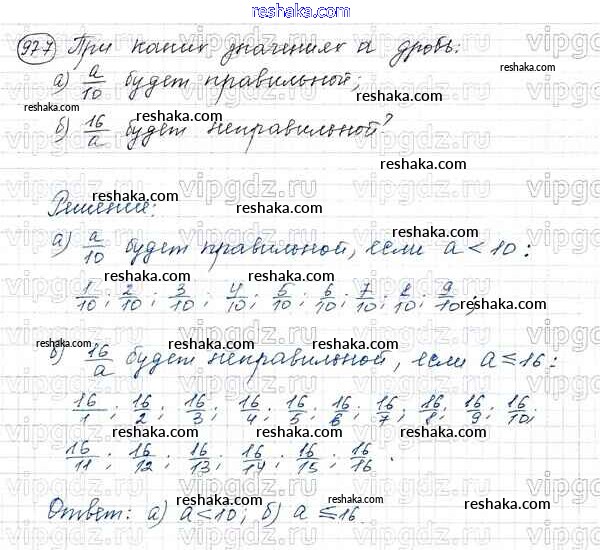 reshaka.com
927 При каких значениях a дробь:
а) a/10 будет правильной;
б) 16/a будет неправильной?
Решение:
а) a/10 будет правильной, если a < 10:
1/10; 2/10; 3/10; 4/10; 5/10; 6/10; 7/10; 8/10; 9/10;
б) 16/a будет неправильной, если a ≤ 16:
16/1; 16/2; 16/3; 16/4; 16/5; 16/6; 16/7; 16/8; 16/9; 16/10;
16/11; 16/12; 16/13; 16/14; 16/15; 16/16.
Ответ: а) a < 10; б) a ≤ 16.
vipgdz.ru